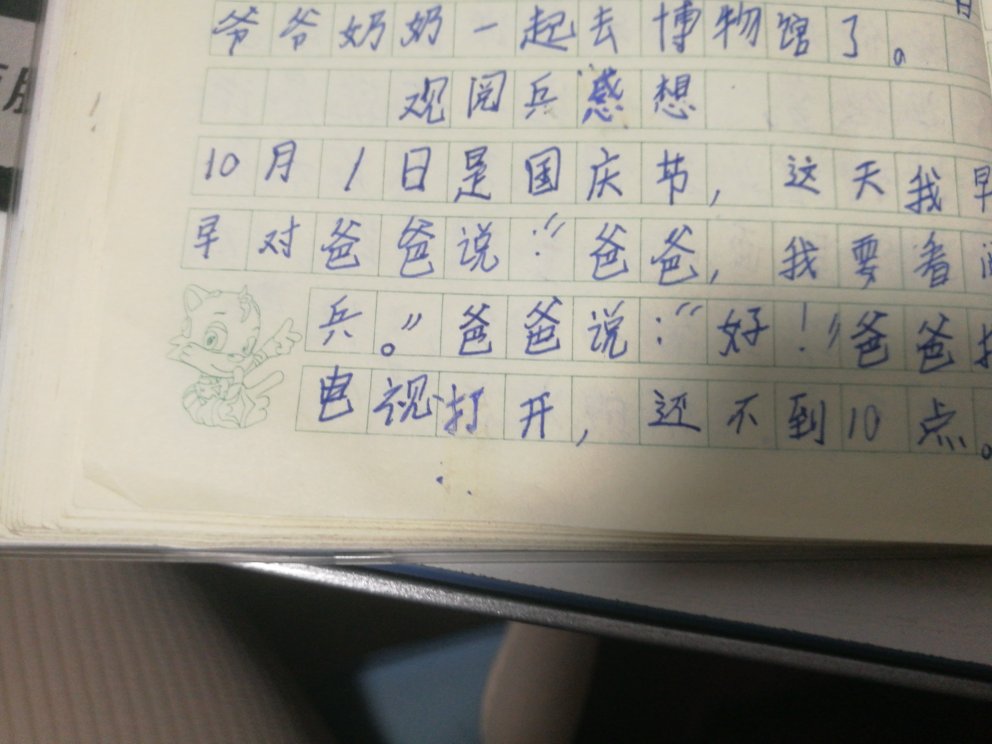 爷爷奶奶一起去博物馆了。
观阅兵感想
10月1日是国庆节，这天我早
早对爸爸说：“爸爸，我要看
兵。”爸爸说：“好！”爸爸
电视打开，还不到10点。